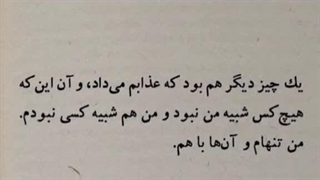 یك چیز دیگر هم بود که عذابم می‌داد، و آن این که
هیچ کس شبیه من نبود و من هم شبیه کسی نبودم.
من تنهام و آن‌ها با هم.